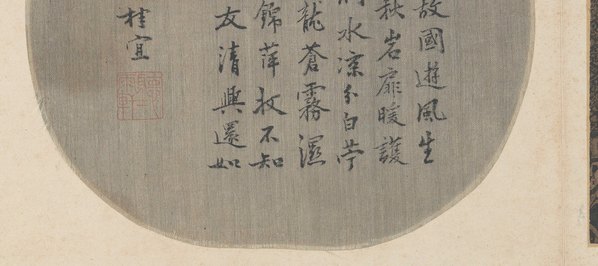 故國遊風生
秋岩扉暖護
水涼分白苧
龍蒼霧濕
錦萍收不知
友清興還如
桂宜